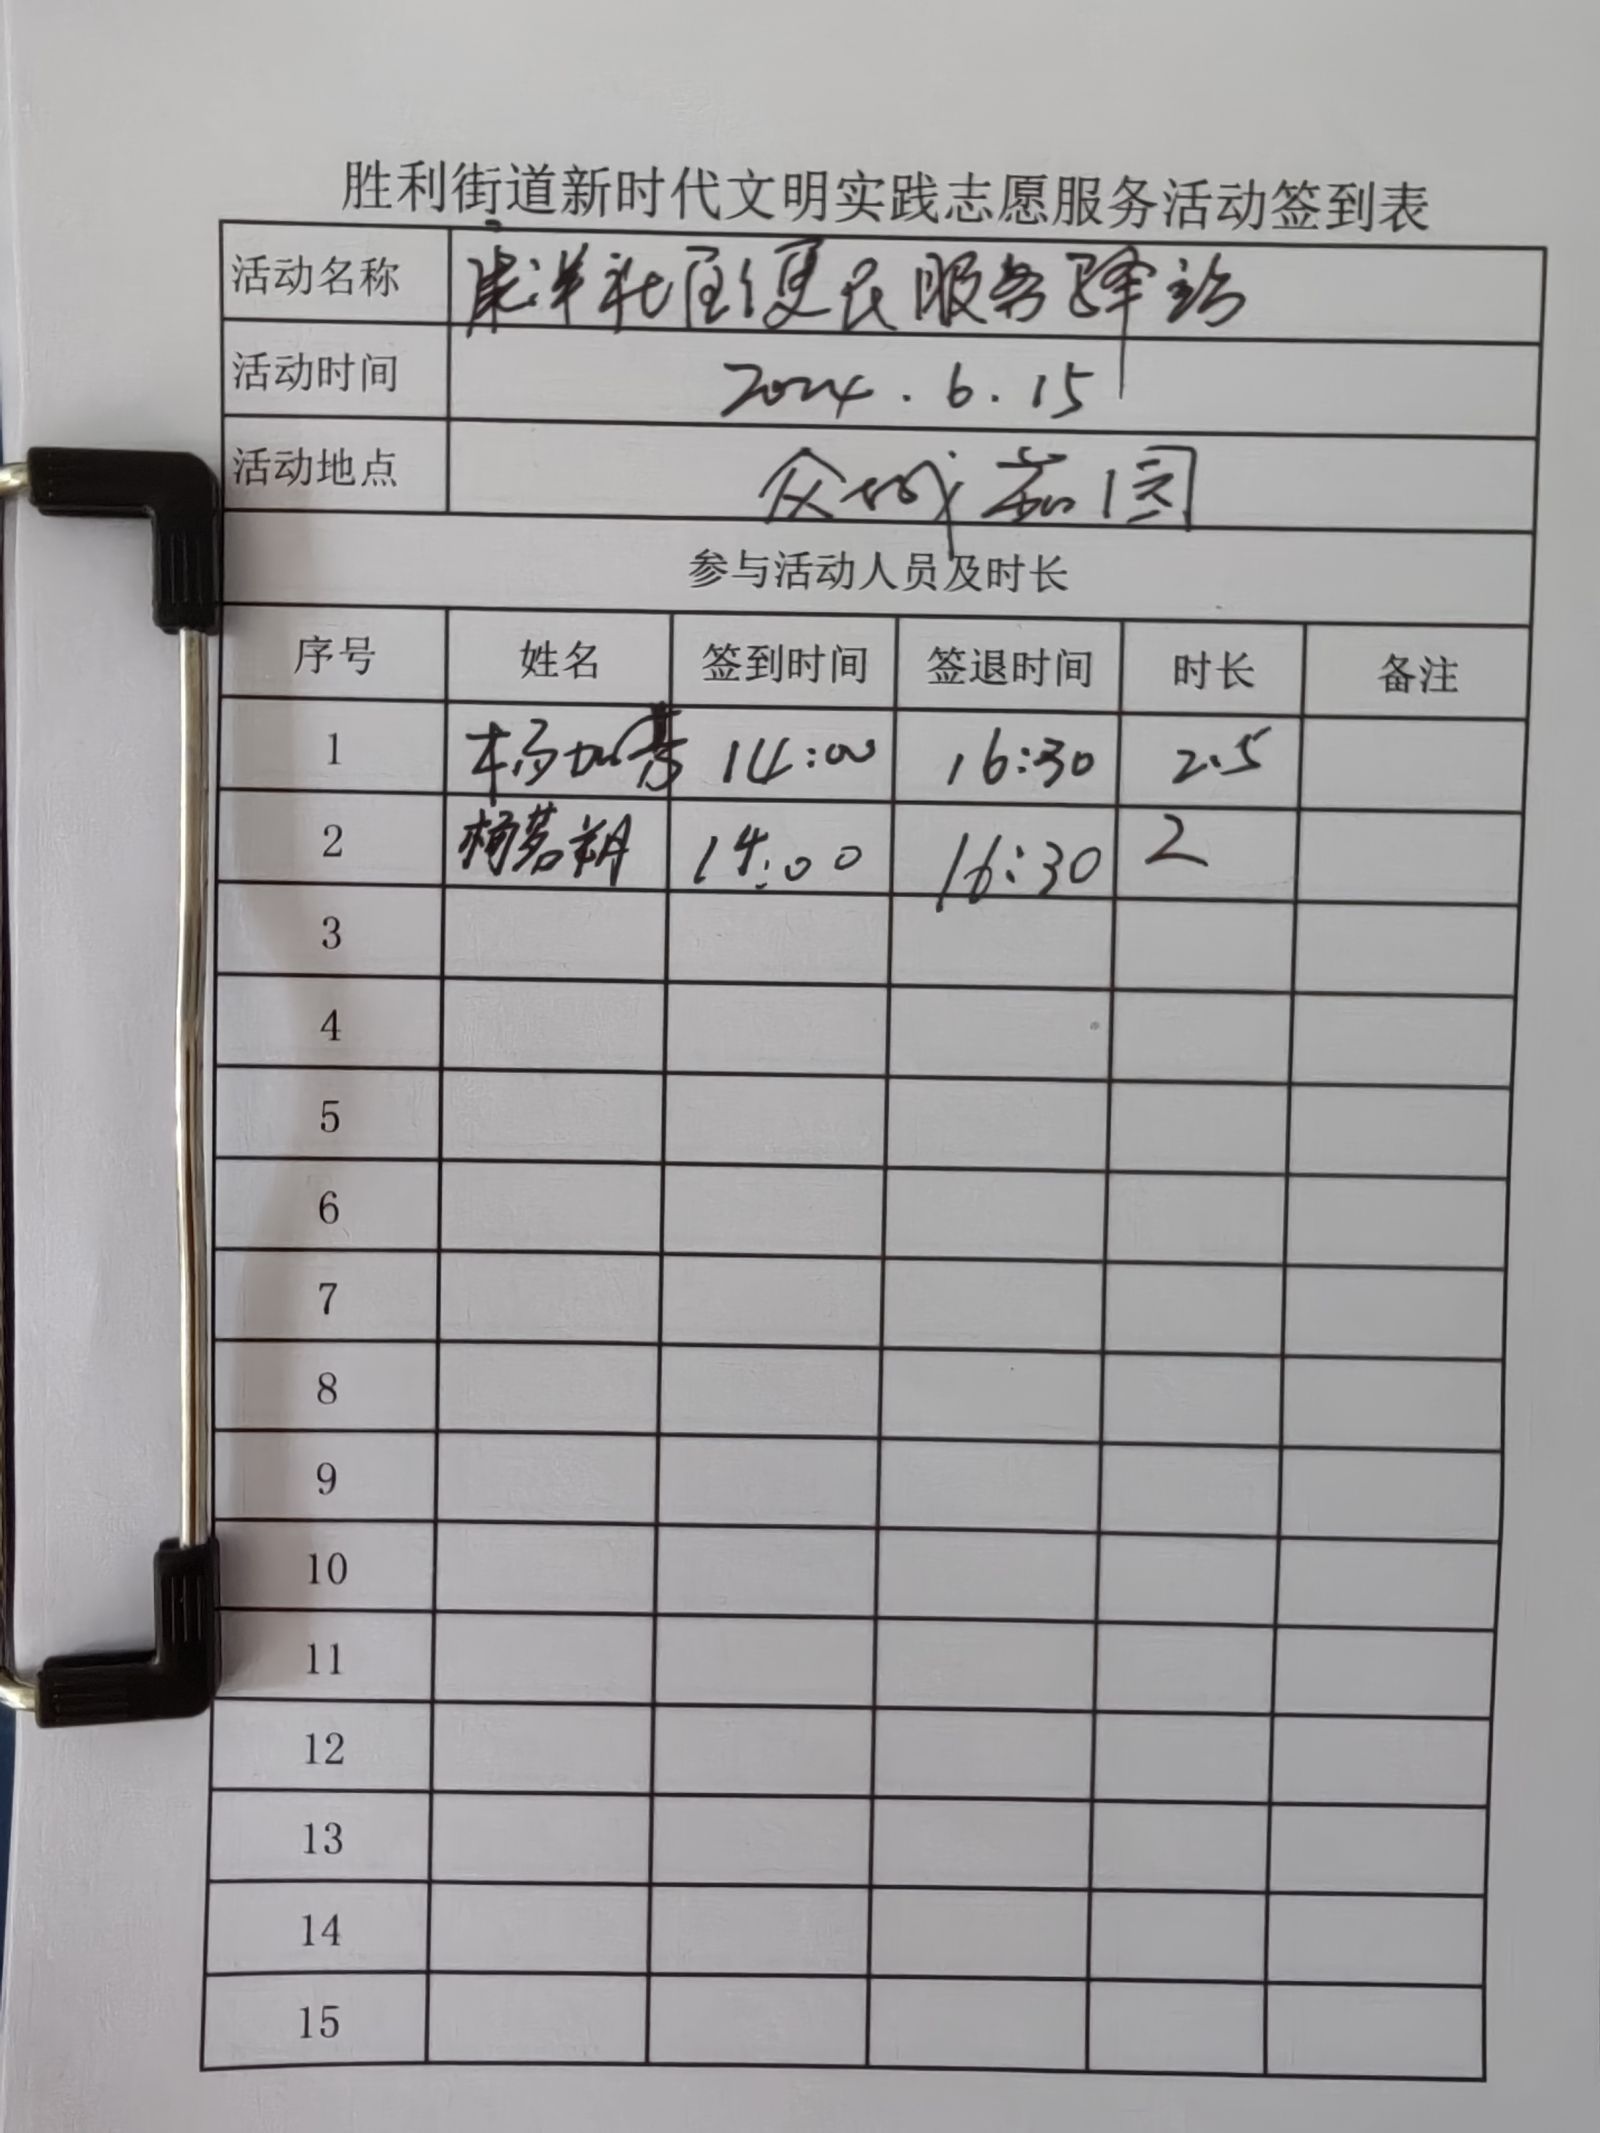 胜利街道新时代文明实践志愿服务活动签到表
活动名称 社区便民服务驿站
活动时间 2024.6.15
活动地点 众城嘉园
参与活动人员及时长
序号 姓名 签到时间 签退时间 时长 备注
1 杨加芳 14:00 16:30 2.5
2 杨茗朔 14:00 16:30 2
3
4
5
6
7
8
9
10
11
12
13
14
15